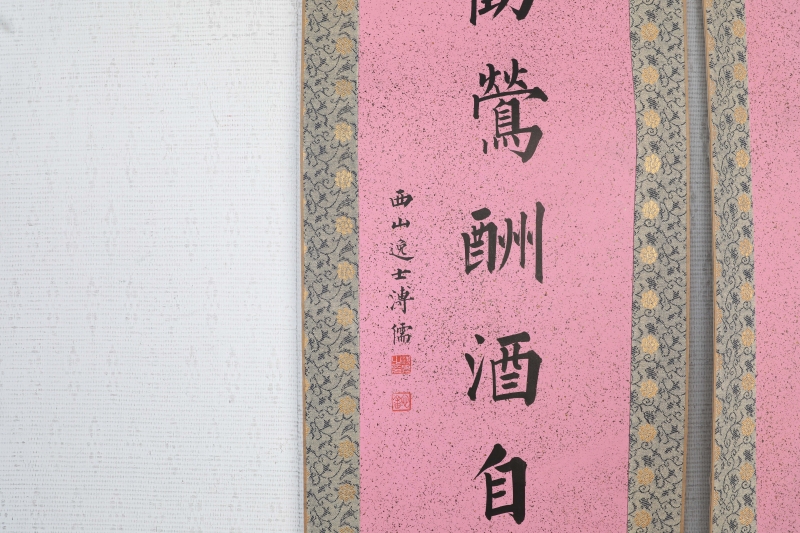 鶯酬酒自
西山逸士溥儒